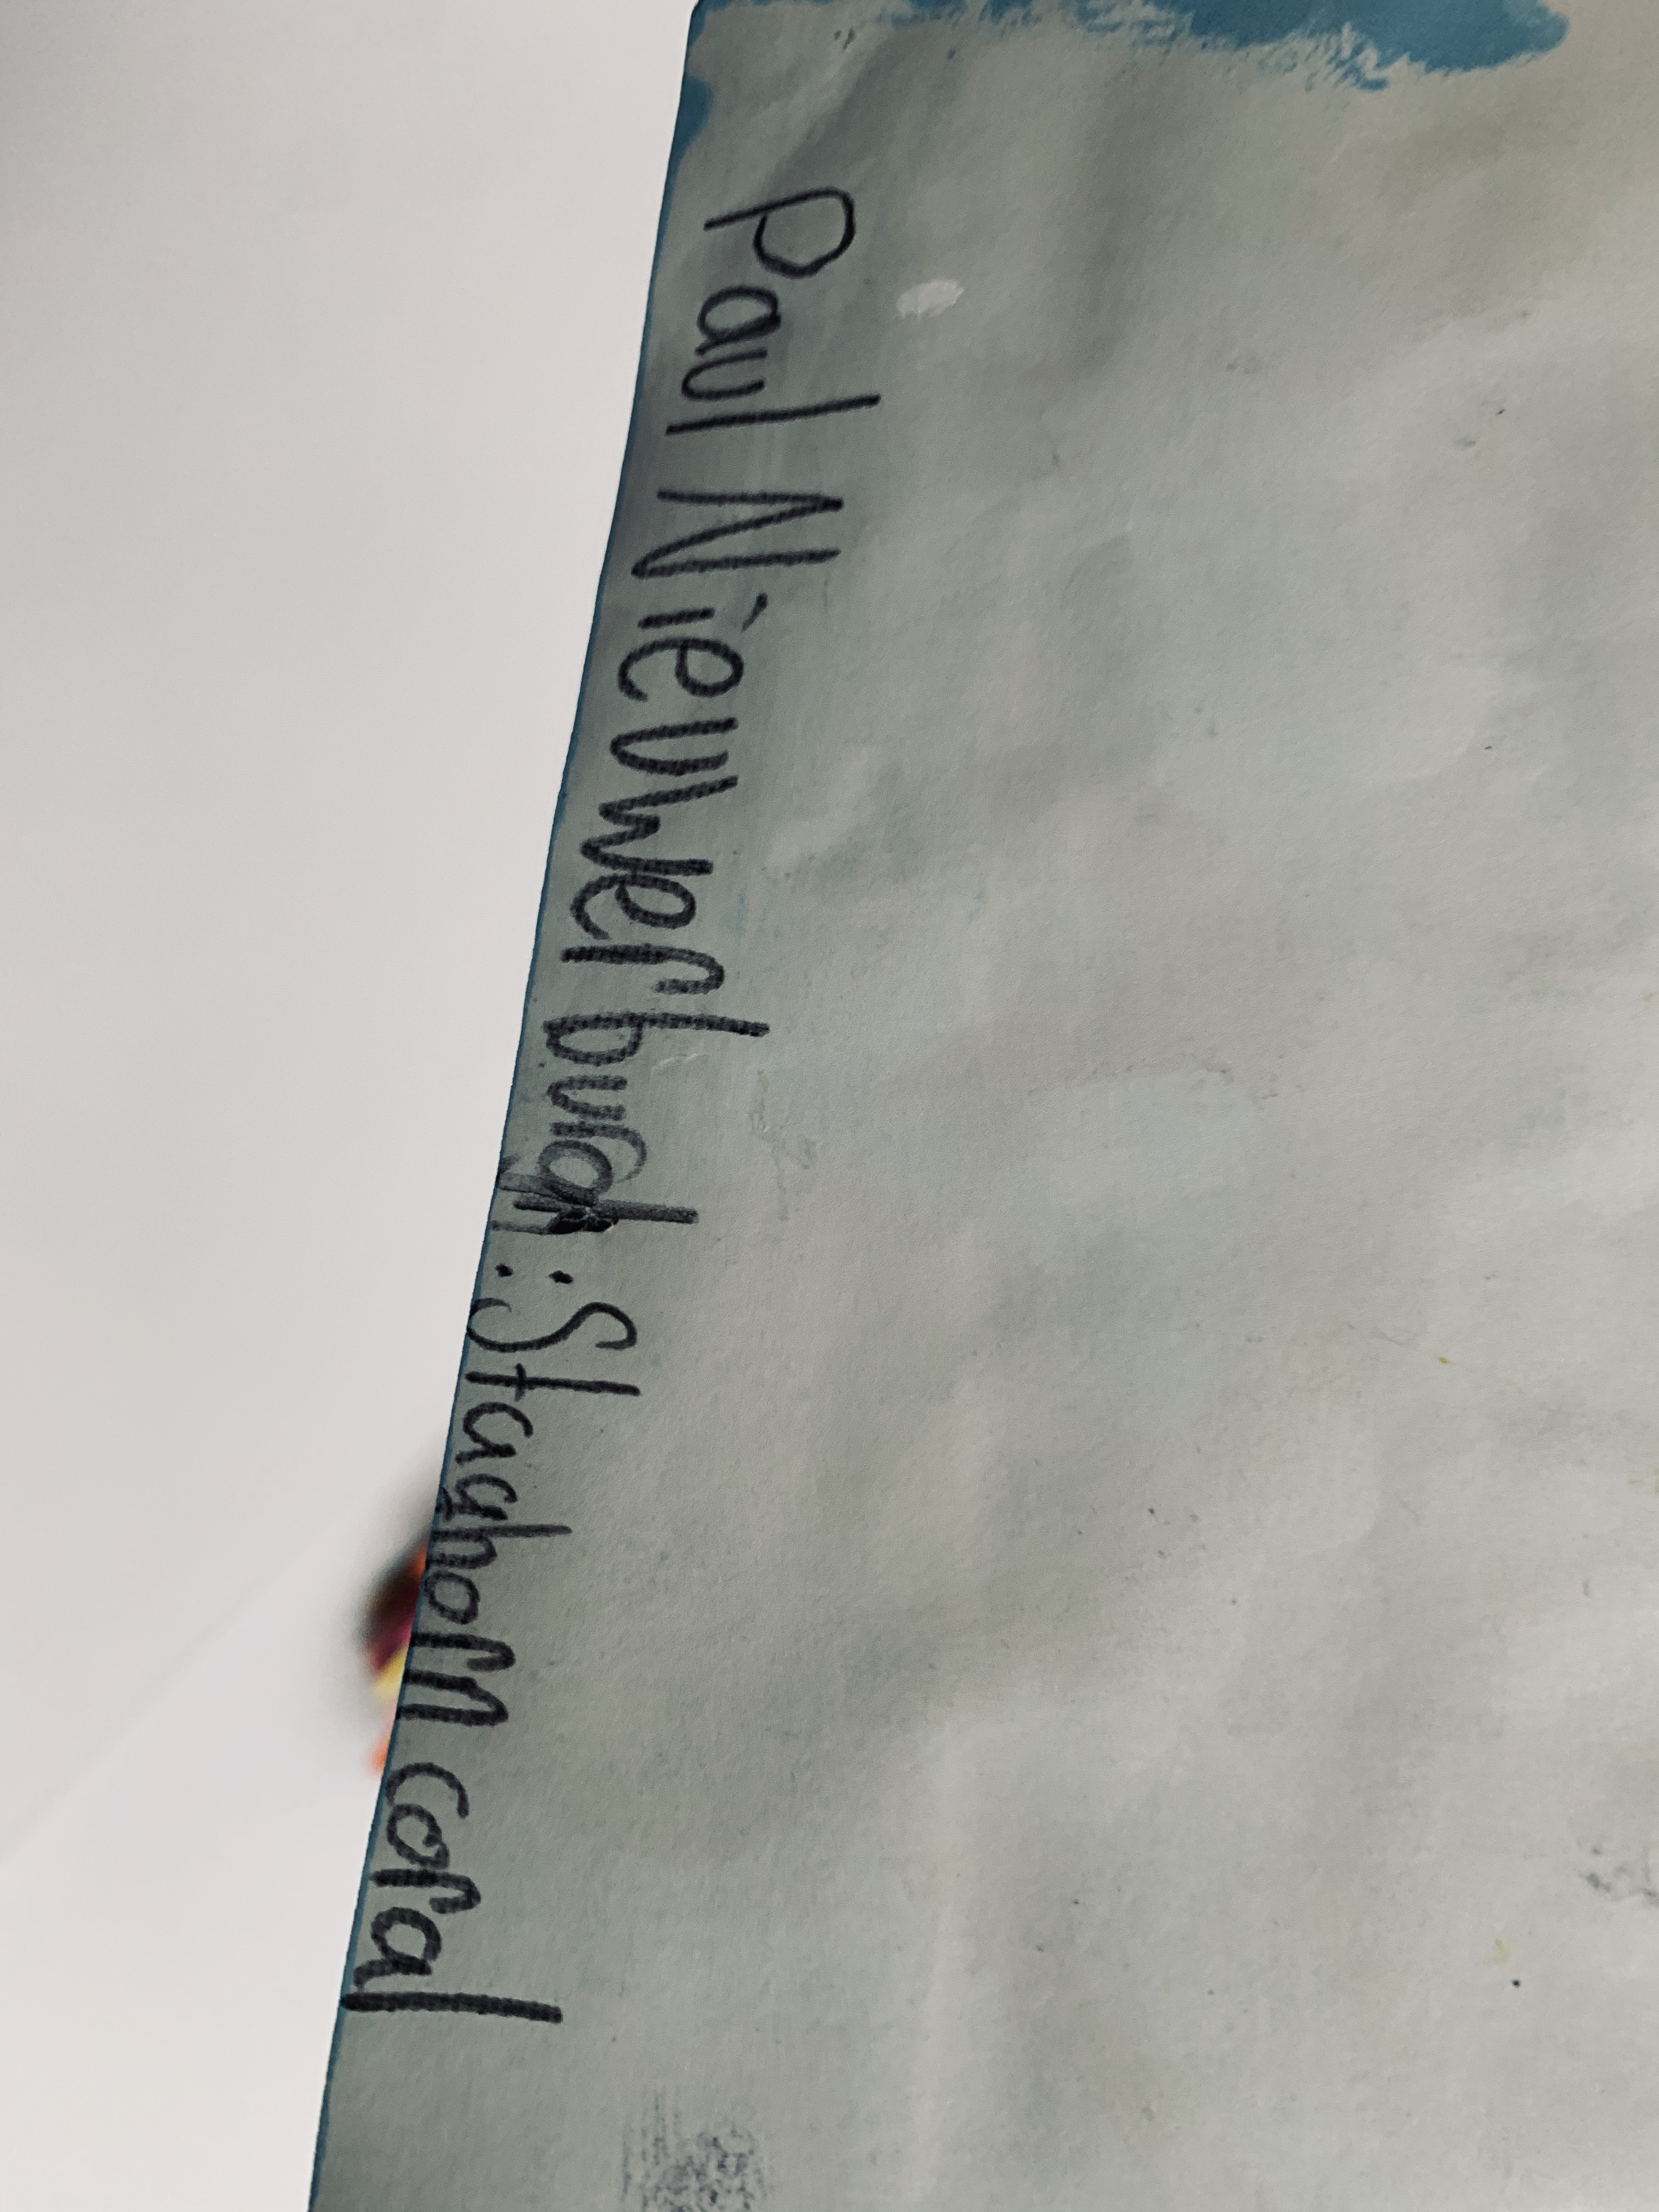 Paul Nieuwerburgh : Staghorn coral